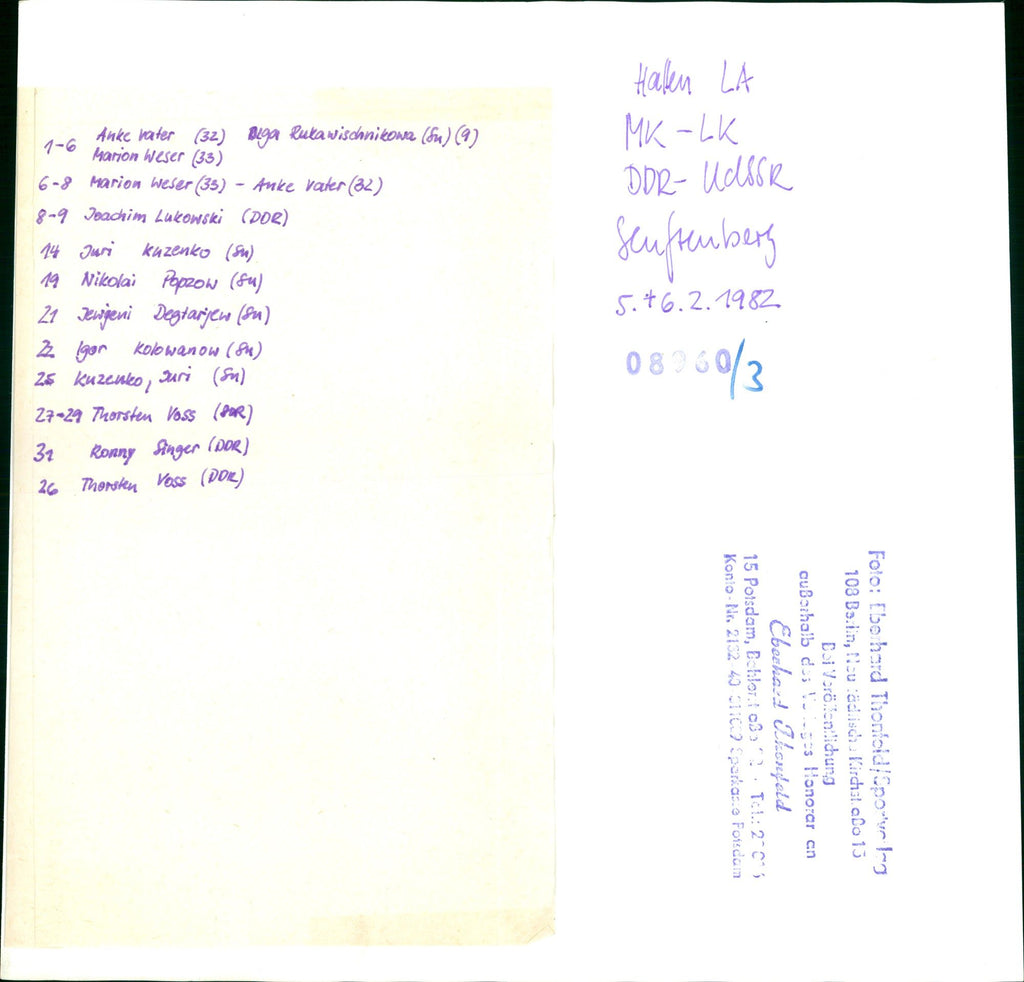 1-6 Anke Vater (32) Olga Rukawischnikowa (Su) (9)
Marion Weser (33)
6-8 Marion Weser (33) - Anke Vater (32)
8-9 Joachim Lukowski (DDR)
14 Juri Kuzenko (Su)
19 Nikolai Popzow (Su)
21 Jewgeni Degtarjew (Su)
22 Igor Kolowanow (Su)
25 Kuzenko, Juri (Su)
27-29 Thorsten Voss (DDR)
31 Ronny Singer (DDR)
26 Thorsten Voss (DDR)
Hallen LA
MK-LK
DDR-UdSSR
Senftenberg
5.+6.2.1982
08960/3
Foto: Eberhard Thonfeld/Sportverlag
108 Berlin, Neustädtische Kirchstraße 15
Bei Veröffentlichung
außerhalb des Verlages Honorar an
Eberhard Thonfeld
15 Potsdam, Tel.:
Konto-Nr. 2182 40 Sparkasse Potsdam